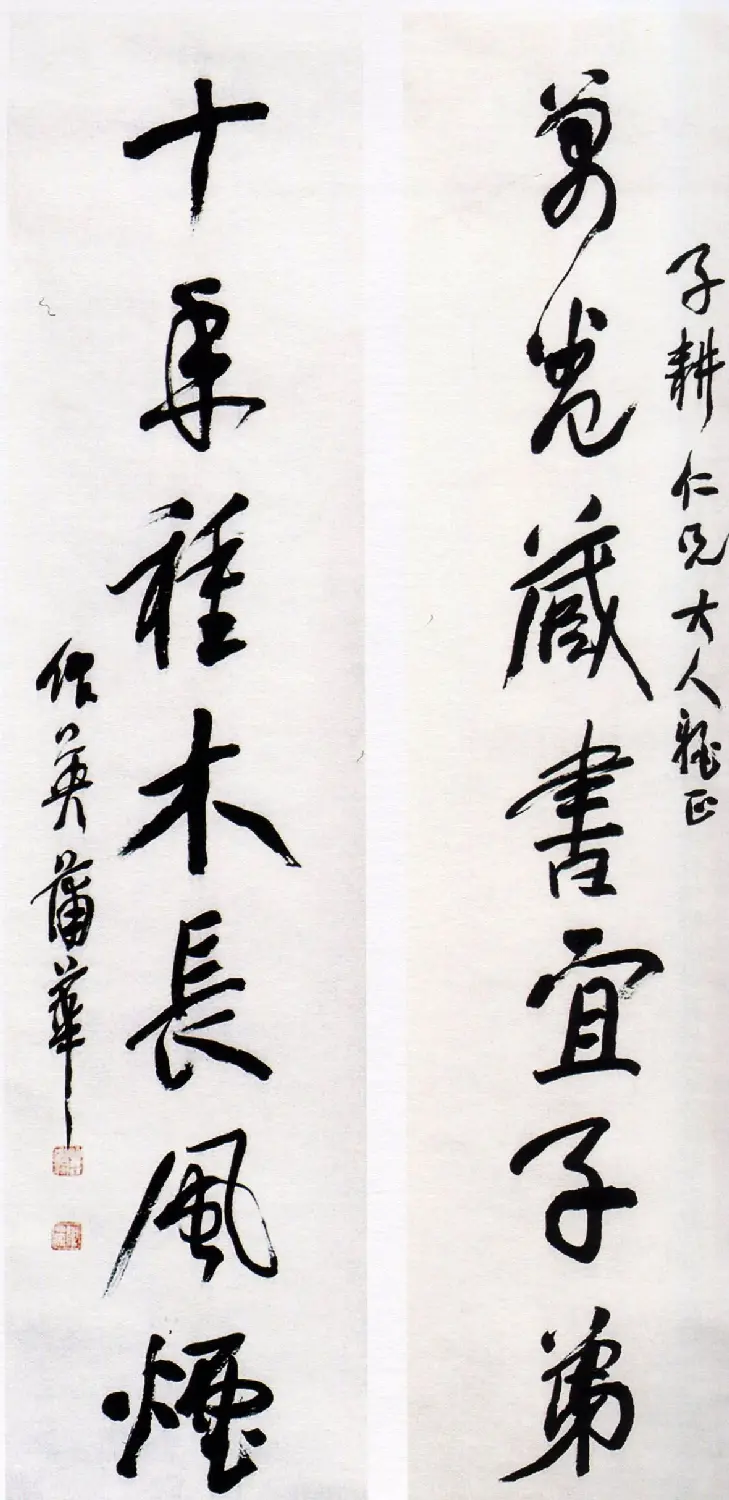 子耕仁兄大人雅正
萬卷藏書宜子弟
十年種木長風煙
作英蒲華